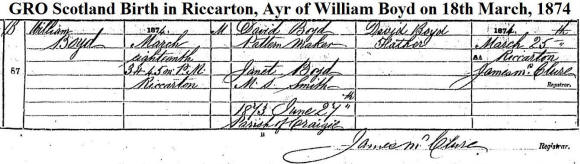 GRO Scotland Birth in Riccarton, Ayr of William Boyd on 18th March, 1874
57
William
Boyd
1874
March
eighteenth
3h 45m P.M.
Riccarton
M
David Boyd
Pattern Maker
Janet Boyd
M.S. Smith
1873 June 27th
Parish of Craigie
David Boyd
Father
1874
March 25th
At Riccarton
James McClure
Registrar.
James McClure Registrar.